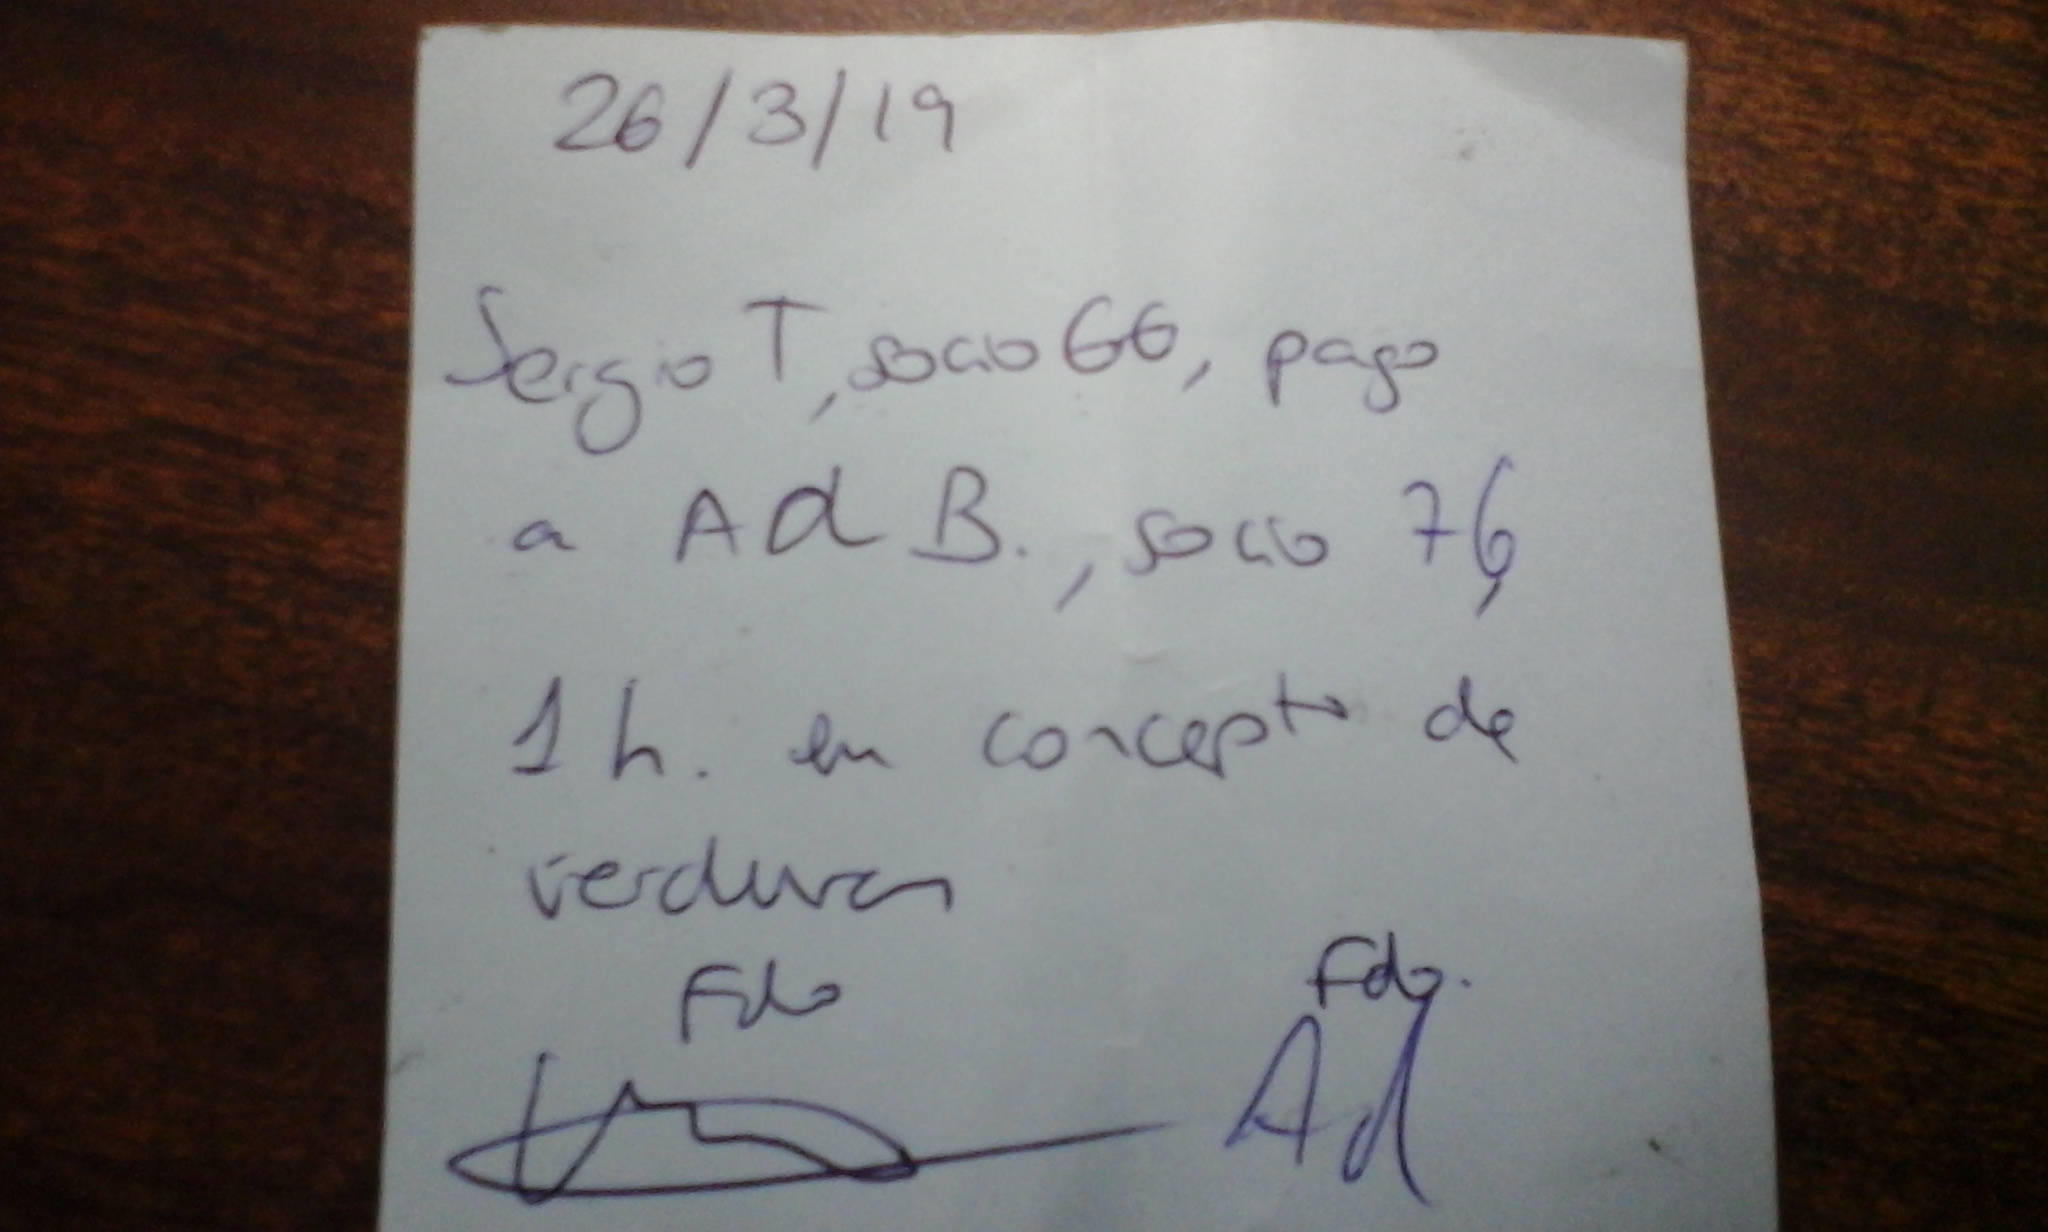 26/3/19
Sergio T, socio 66, pago
a Ad B., socio 76,
1 h. en concepto de
verduras
Fdo Fdo.
Ad